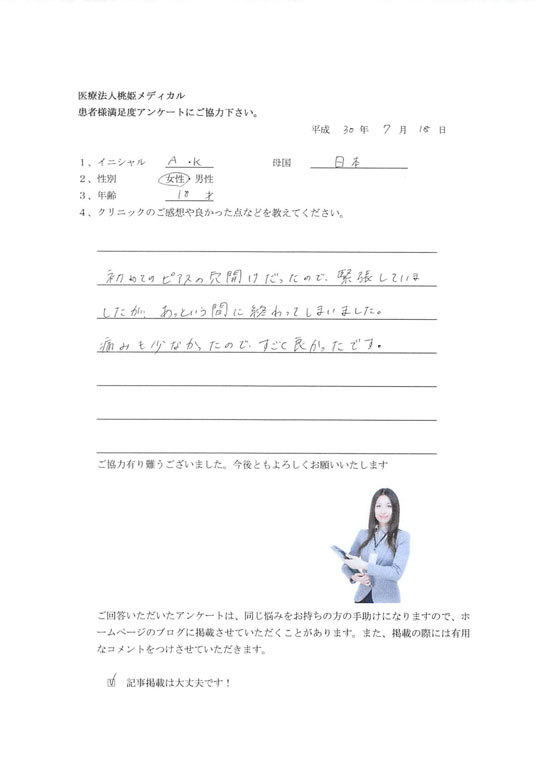 医療法人桃姫メディカル
患者様満足度アンケートにご協力下さい。
平成 30 年 7 月 18 日
1、イニシャル A.K 母国 日本
2、性別 女性・男性
3、年齢 18 才
4、クリニックのご感想や良かった点などを教えてください。
初めてのピアスの穴開けだったので、緊張していま
したが、あっという間に終わってしまいました。
痛みも少なかったので、すごく良かったです。
ご協力有り難うございました。今後ともよろしくお願いいたします
ご回答いただいたアンケートは、同じ悩みをお持ちの方の手助けになりますので、ホ
ームページのブログに掲載させていただくことがあります。また、掲載の際には有用
なコメントをつけさせていただきます。
☑ 記事掲載は大丈夫です！